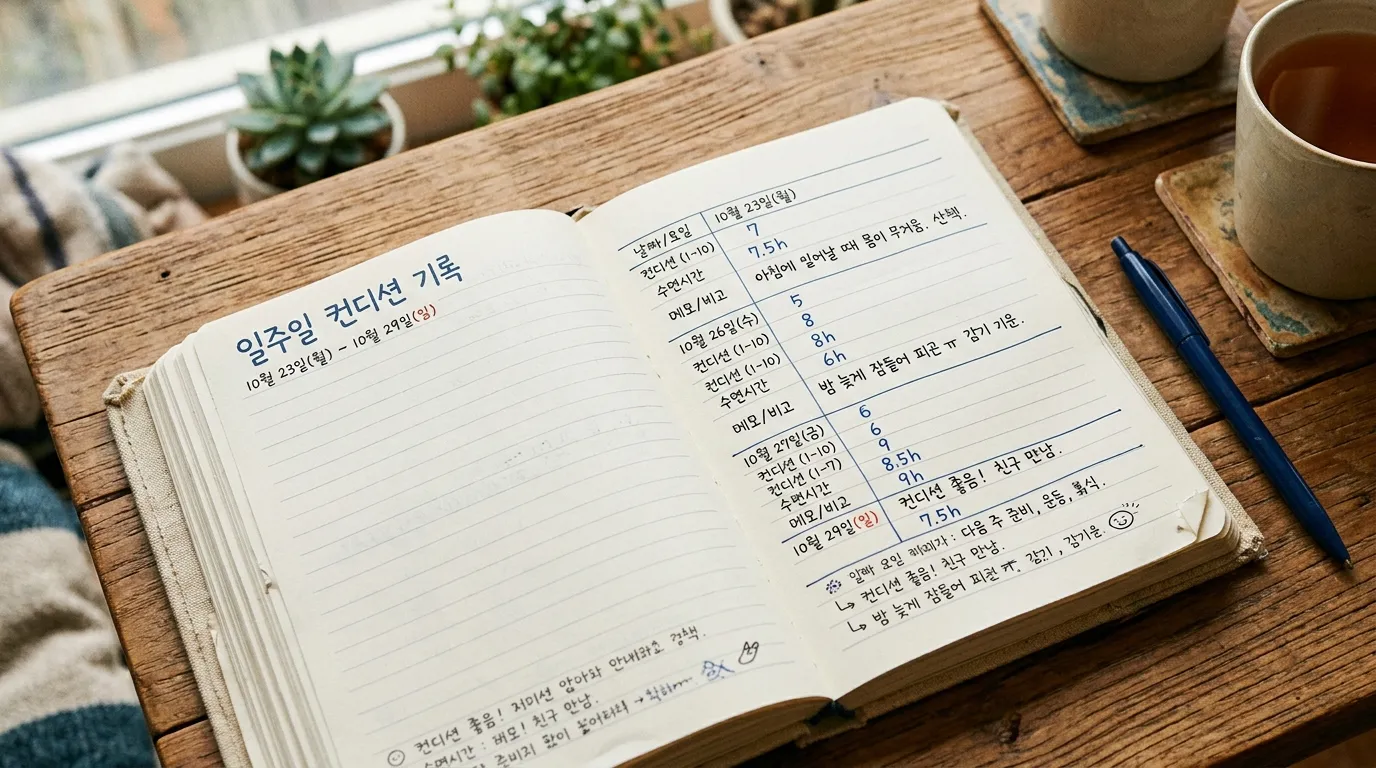 일주일 컨디션 기록
10월 23일(월) - 10월 29일(일)
컨디션 좋음!
수면시간 : 친구 만남.
날짜/요일 10월 23일(월)
컨디션 (1-10) 7
수면시간 7.5h
메모/비고 아침에 일어날 때 몸이 무거움. 산책.
10월 26일(수) 5
컨디션 (1-10) 8
컨디션 (1-10) 8h
수면시간 6h
메모/비고 밤 늦게 잠들어 피곤 ㅠ 감기 기운.
10월 27일(금) 6
컨디션 (1-10) 6
컨디션 (1-7) 9
수면시간 8.5h
메모/비고 9h
컨디션 좋음! 친구 만남.
10월 29일(일) 7.5h
요일 : 다음 주 준비, 운동,
↳ 컨디션 좋음! 친구 만남.
↳ 밤 늦게 잠들어 피곤 감기, 감기운.